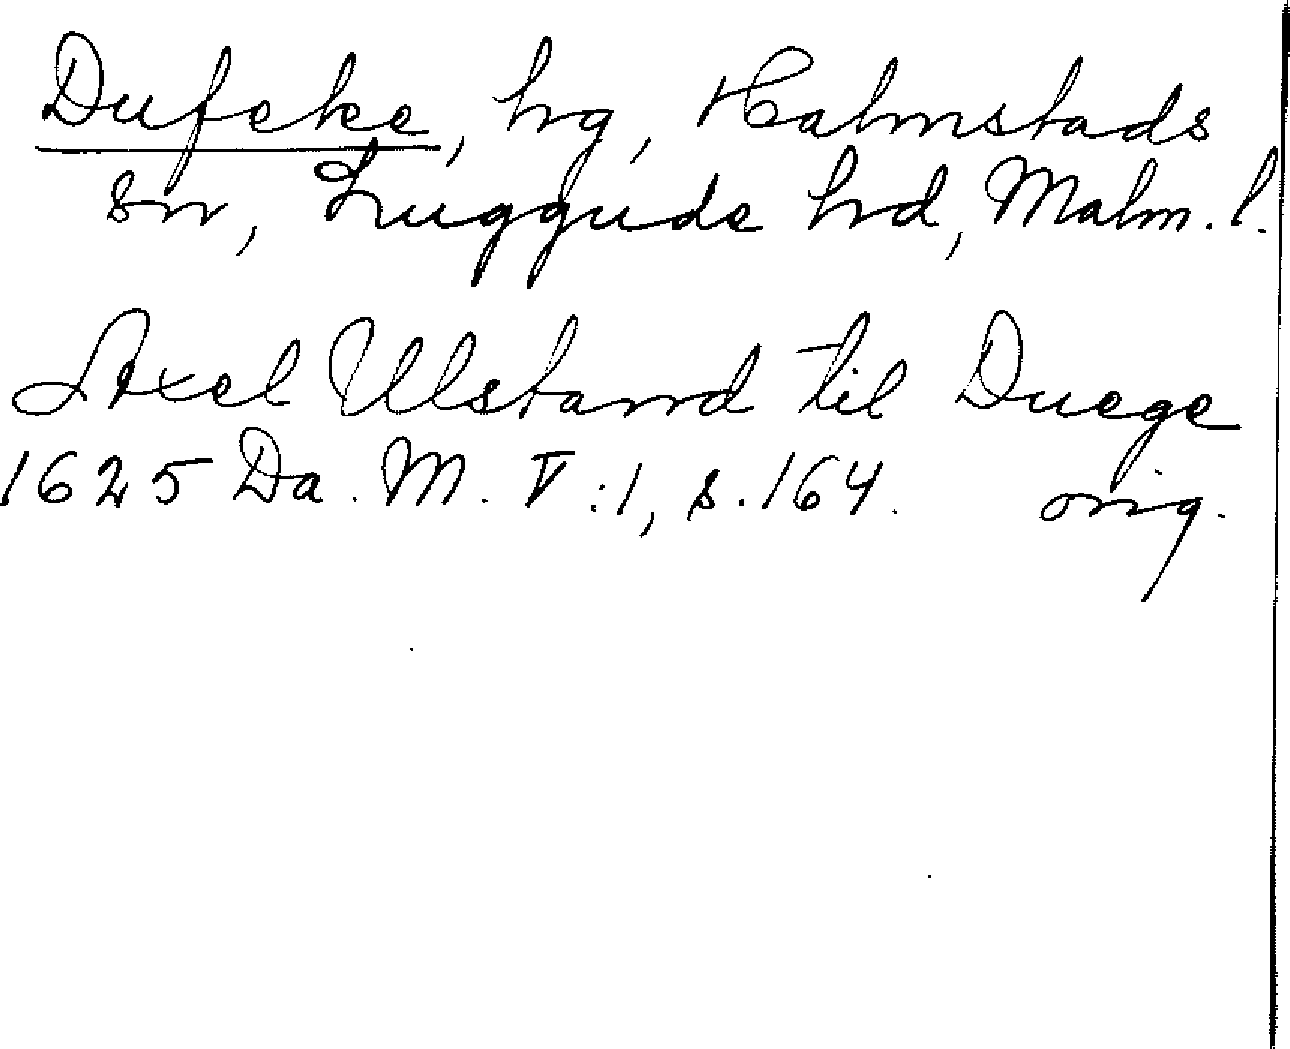 Dufeke, hg, Halmstads
sn, Luggude hd, Malm. l.
Axel Ulstand til Duege
1625 Da. M. V:1, s. 164. orig.